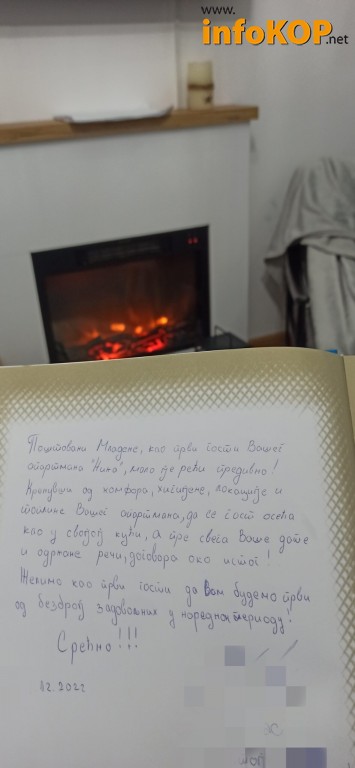 www.
infoKOP.net
Поштовани Младене, као први гости Вашег
апартмана "Нина", мало је рећи предивно!
Кренувши од комфора, хигијене, локације и
топлине Вашег апартмана, да се гост осећа
као у својој кући, а пре свега Ваше дате
и одржане речи, договора око истог!
Желимо као први гости да Вам будемо први
од безброј задовољних у наредном периоду!
Срећно!!!
12.2022